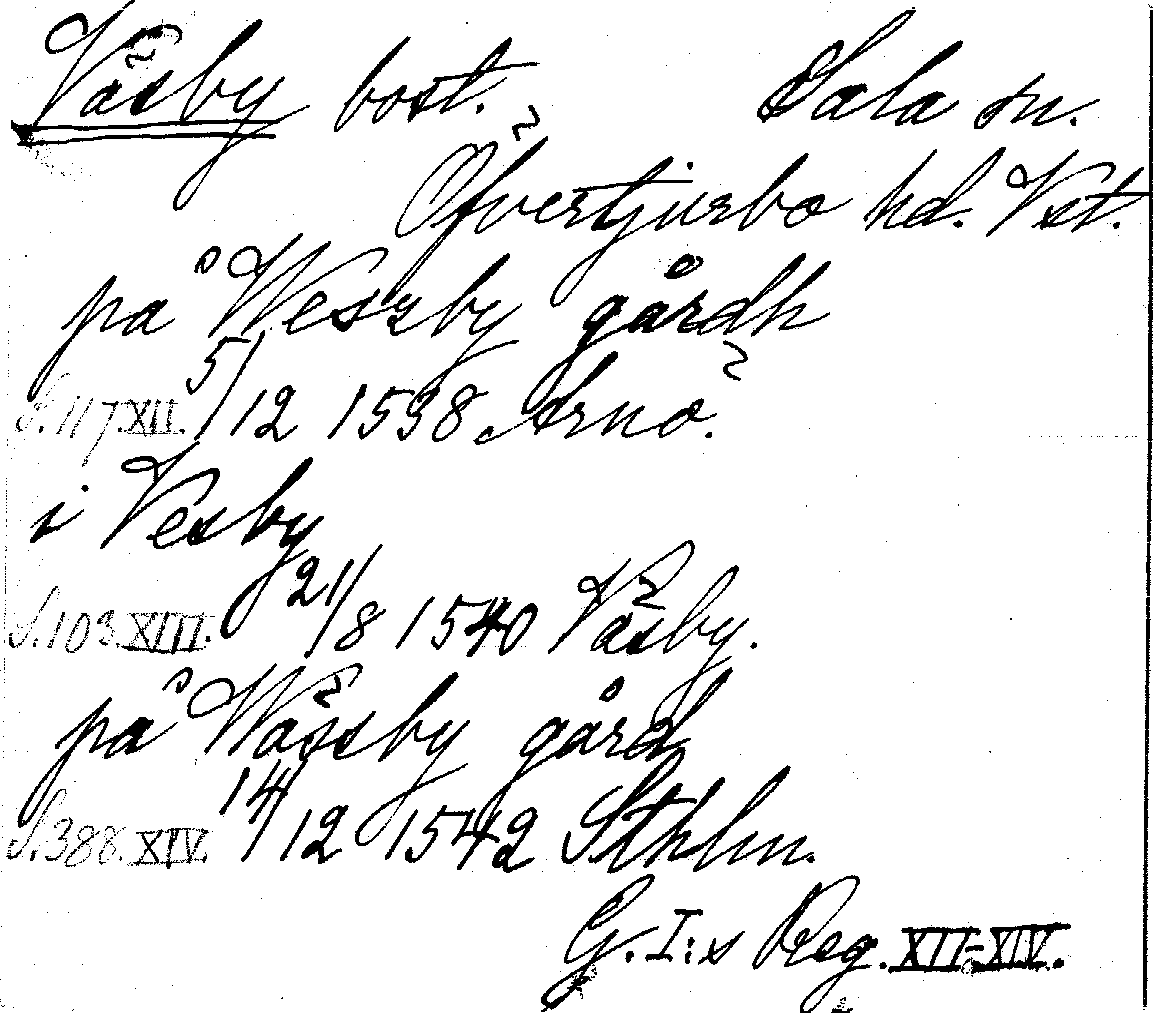 Väsby bost. Sala sn.
Öfvertjurbo hd. Vst.
på Weszby gårdh
S. 117. XII. 5/12 1538 Arnö.
i Vesby
S. 103. XIII. 21/8 1540 Väsby.
på Wässby gård
S. 388. XIV. 14/12 1542 Sthlm.
G. I:s Reg. XII-XIV.